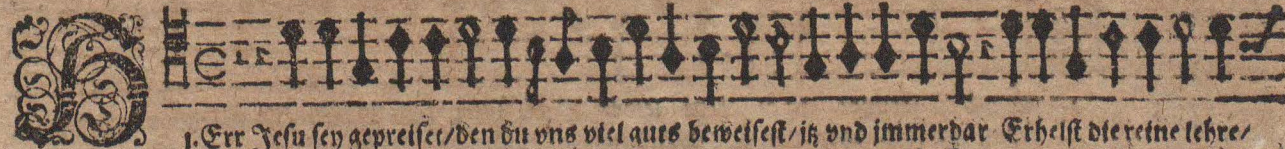 H
1. Err Jesu sey gepreiset/den du vns viel guts beweisest/itz vnd jmmerdar Erhelst die reine lehre/